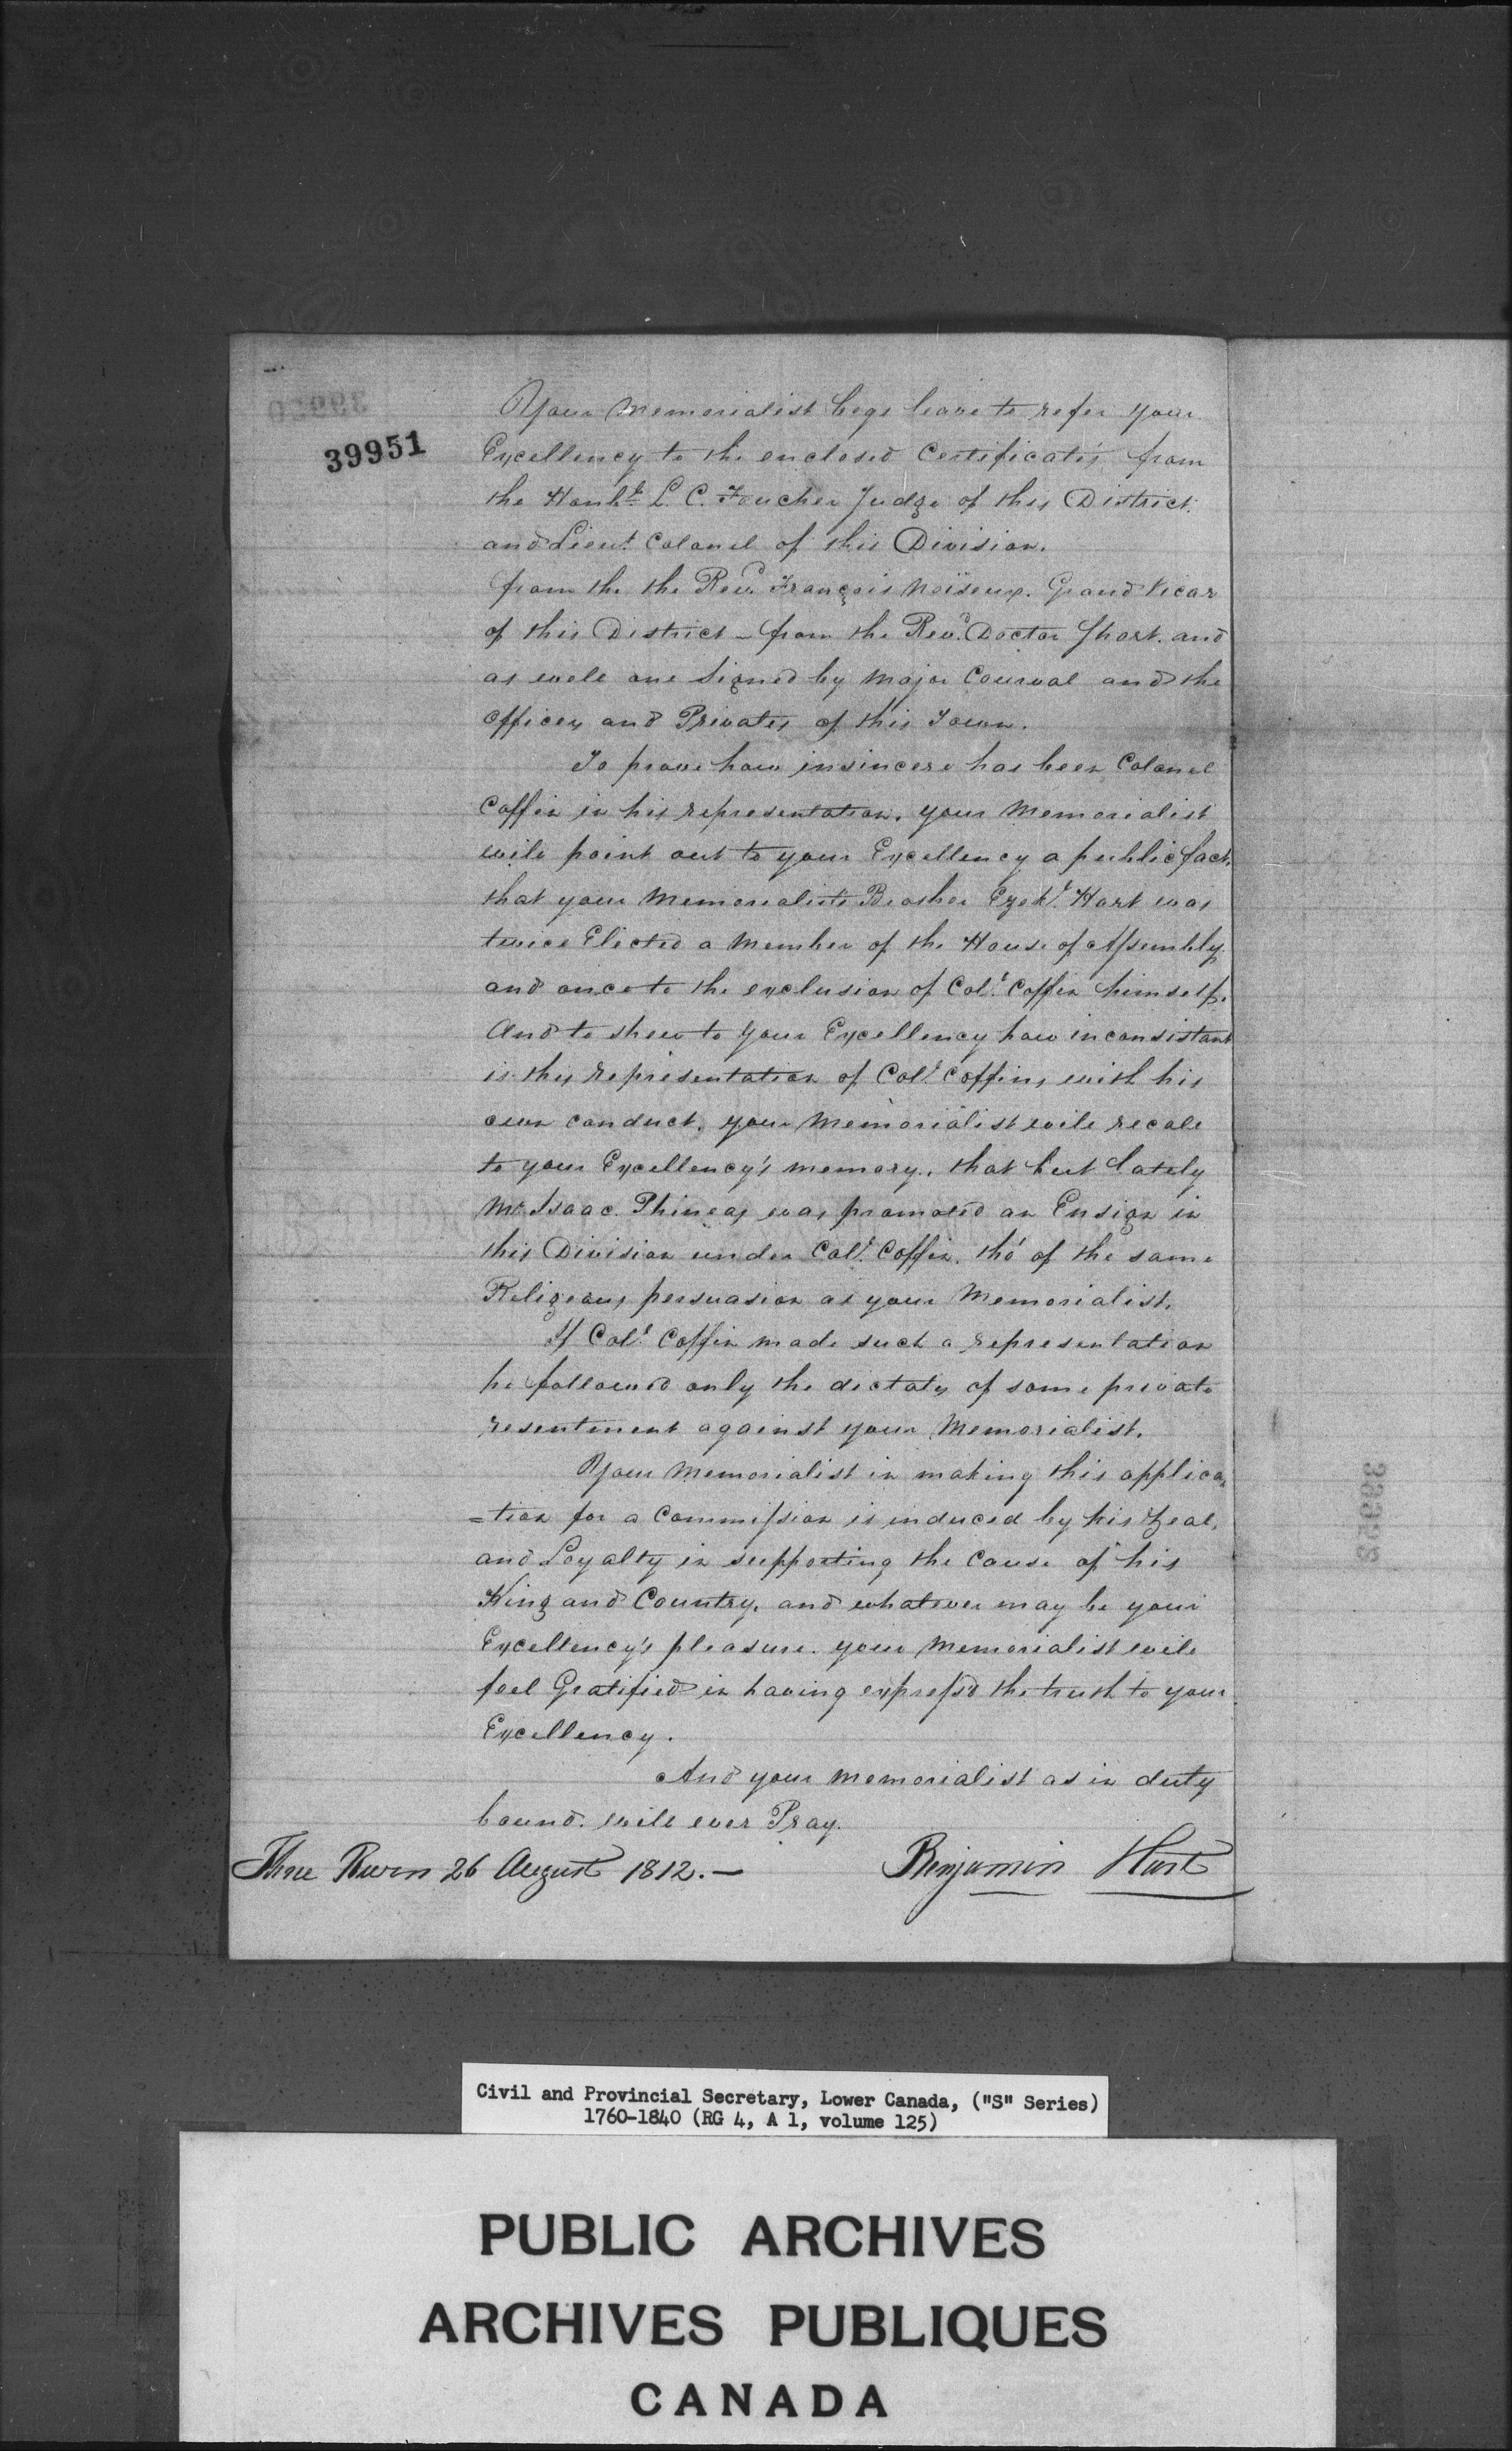 39951
Your Memorialist begs leave to refer your
Excellency to the enclosed Certificates, from
the Honble. L. C. Foucher Judge of this District.
and Lieut. Colonel of this Division.
from the the Revd. François Noiseux. Grand Vicar
of this District – from the Revd. Doctor Short. and
as well one Signed by Major Courval and the
officers and Privates of this Town.
To prove how insincere has been Colonel
Coffin in his representation, your Memorialist
will point out to your Excellency a public fact,
that your Memorialists Brother Ezekl. Hart was
twice Elected a Member of the House of Assembly.
and once to the exclusion of Coll. Coffin himself.
And to shew to your Excellency how inconsistant
is this representation of Coll. Coffins, with his
own conduct, your Memorialist will recall
to your Excellency's memory, that but lately
Mr. Isaac Phineas was promoted an Ensign in
this Division under Coll. Coffin, tho' of the same
Religeous persuasion as your Memorialist.
If Coll. Coffin made such a representation
he followed only the dictates of some private
resentment against your Memorialist.
Your Memorialist in making this applica
=tion for a Commission is induced by his Zeal,
and Loyalty in supporting the Cause of his
King and Country, and whatever may be your
Excellency's pleasure. your Memorialist will
feel Gratified in having express'd the truth to your
Excellency.
And your Memorialist as in duty
bound. will ever Pray.
Three Rivers 26 August 1812.—
Benjamin Hart
Civil and Provincial Secretary, Lower Canada, ("S" Series)
1760-1840 (RG 4, A 1, volume 125)
PUBLIC ARCHIVES
ARCHIVES PUBLIQUES
CANADA